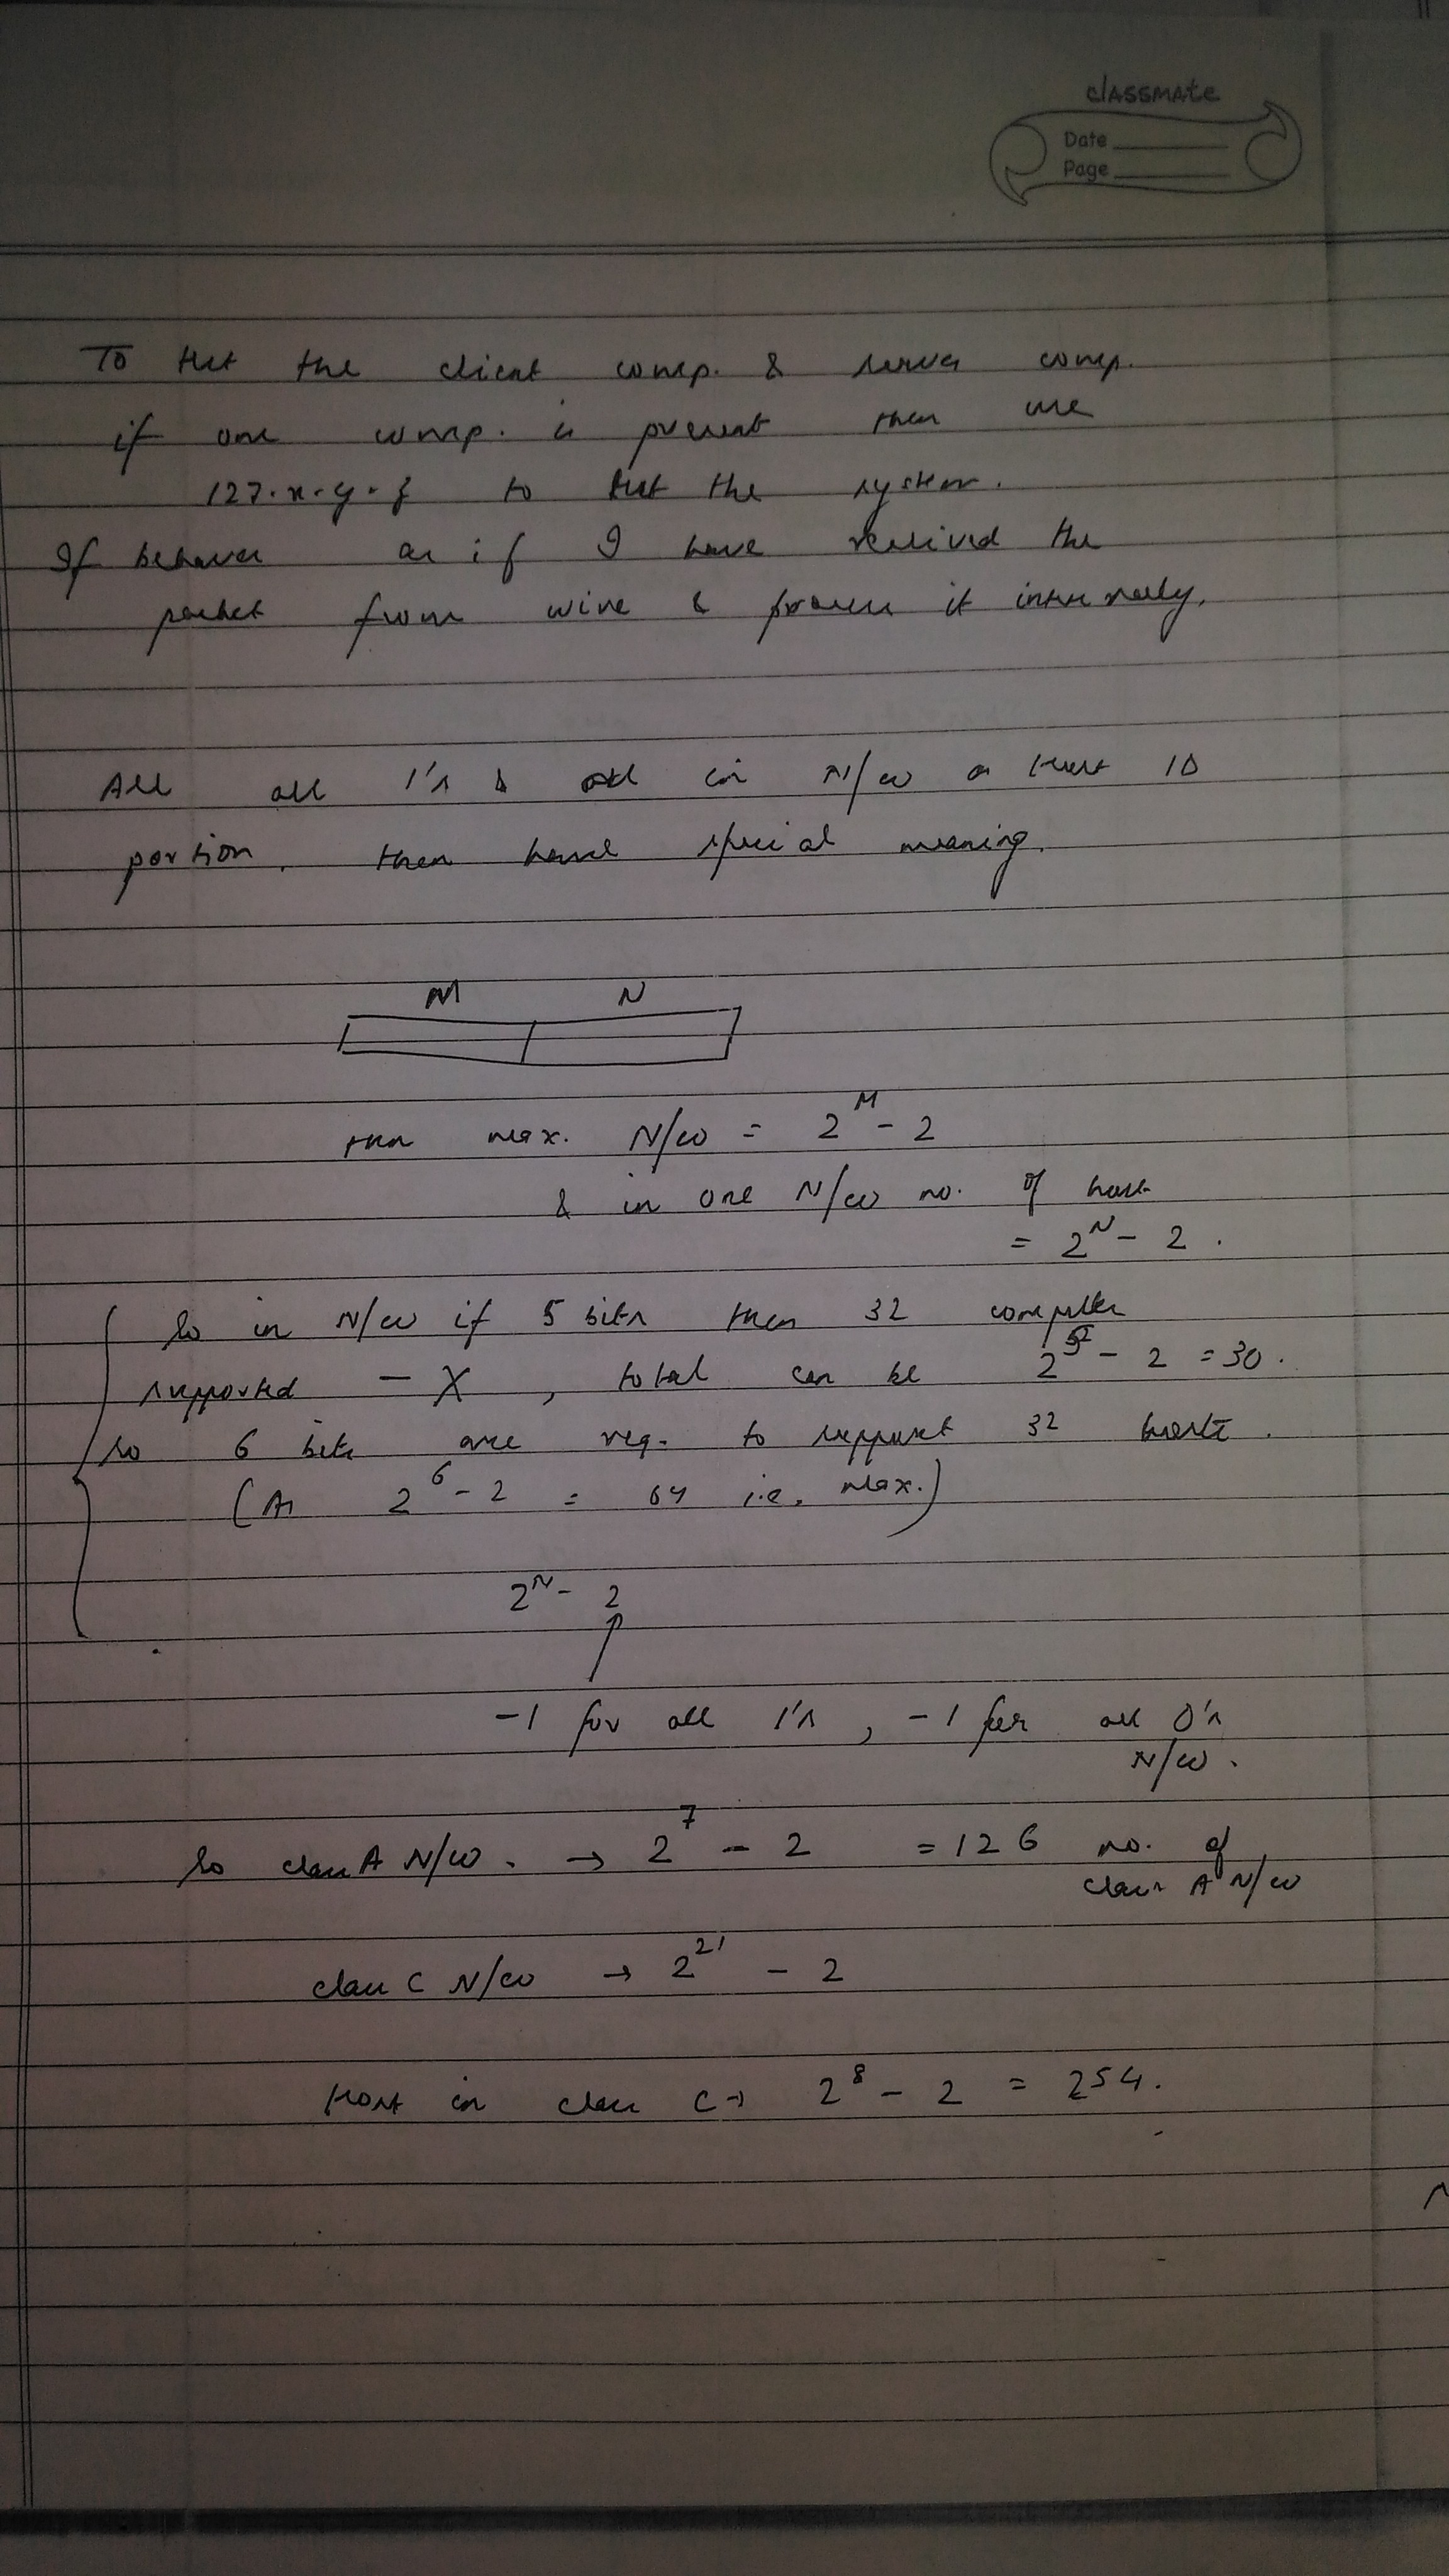 classmate
Date
Page
To test the client comp. & server comp.
if one comp. is present then use
127.x.y.z to test the system.
If behaves as if I have received the
packet from wire & process it internally.
All all 1's & all in N/w or Host ID
portion, then have special meaning.
M N
then max. N/w = 2^M - 2
& in one N/w no. of host
= 2^N - 2.
So in N/w if 5 bits then 32 computer
supported - X, total can be 2^5 - 2 = 30.
so 6 bits are req. to support 32 hosts.
(As 2^6 - 2 = 64 i.e. max.)
2^N - 2
-1 for all 1's, -1 for all 0's
N/w.
So class A N/w. → 2^7 - 2 = 126 no. of
class A N/w
class C N/w → 2^21 - 2
Host in class C → 2^8 - 2 = 254.